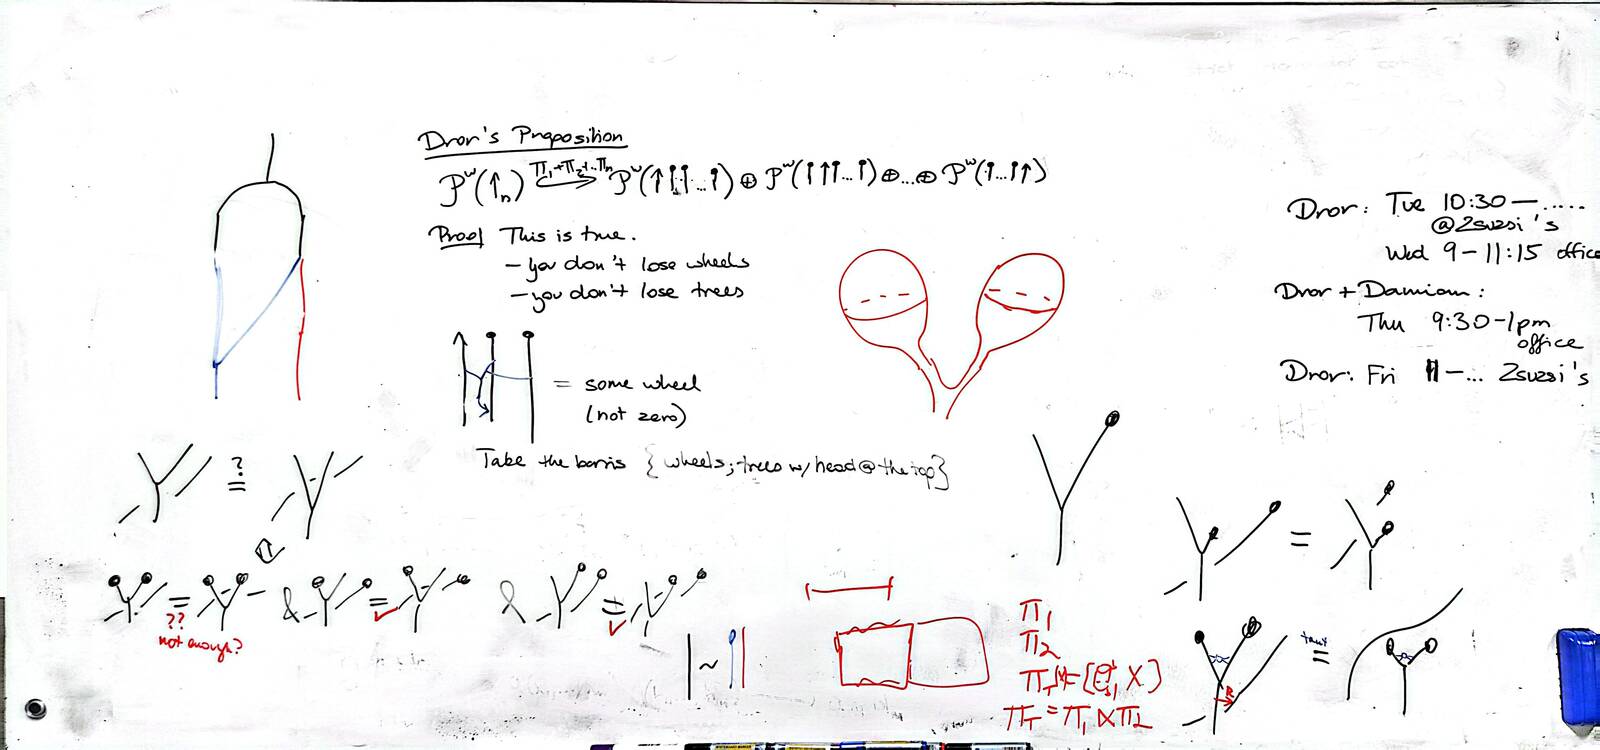 Dror's Proposition
𝒫ʷ(↑ₙ) π₁+π₂+...πₙ ↪ 𝒫ʷ(↑¡¡...¡) ⊕ 𝒫ʷ(¡↑¡...¡) ⊕...⊕ 𝒫ʷ(¡...¡↑)
Proof This is true.
- you don't lose wheels
- you don't lose trees
= some wheel
(not zero)
Take the basis {wheels; trees w/ head @ the top}
Dror: Tue 10:30 — .....
@Zsuzsi's
Wed 9 - 11:15 office
Dror + Damian:
Thu 9:30-1pm
office
Dror: Fri 11 - ... Zsuzsi's
?
=
=
??
not enough?
&
= ✓
&
= ✓
~
π₁
π₂
π_T = π₁ ⋉ π₂
=
R
=